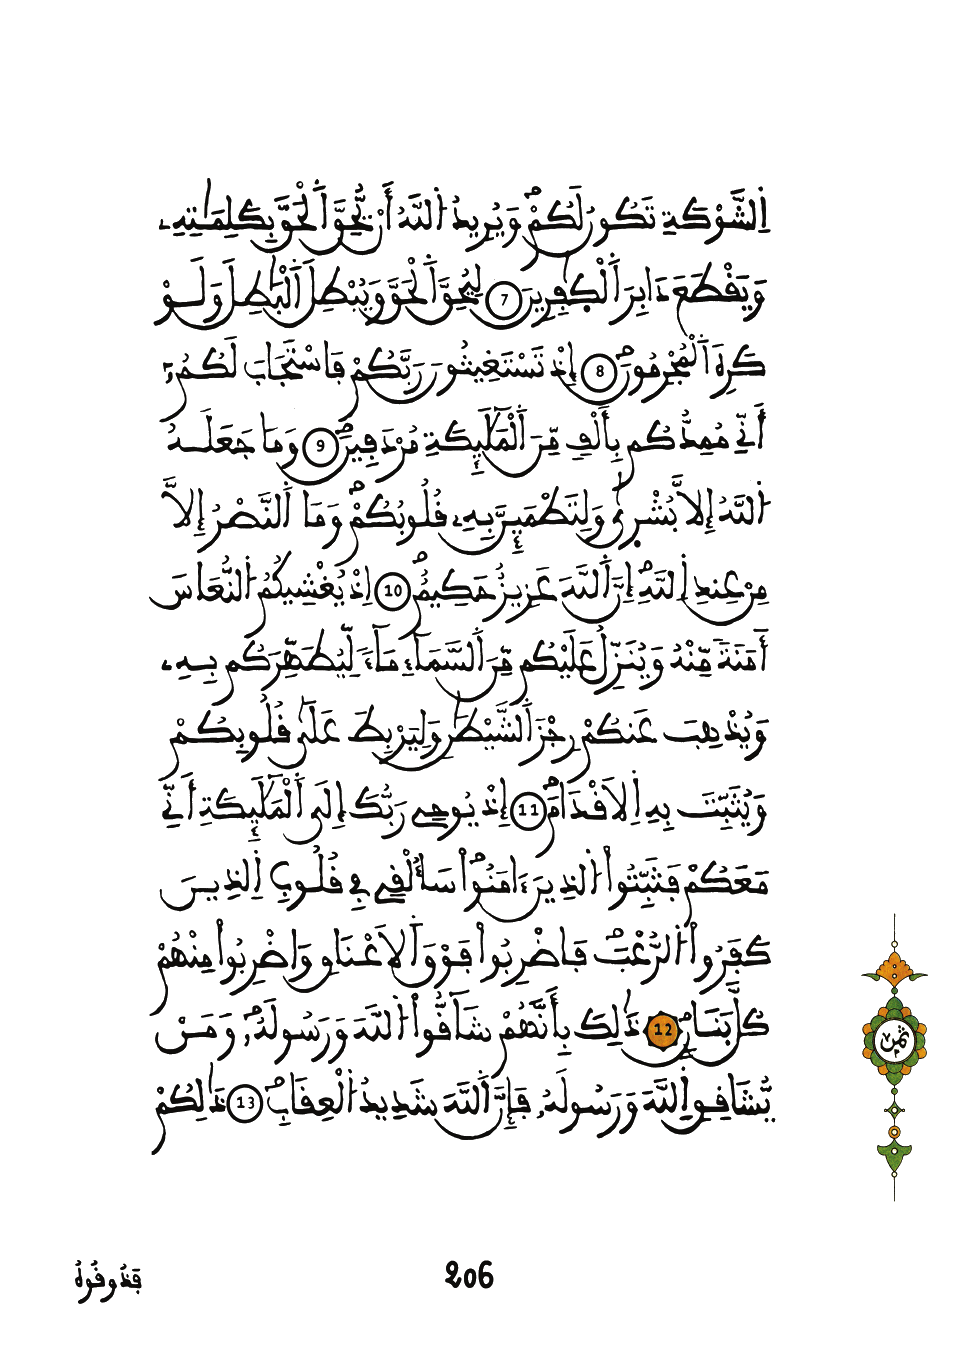 اَ۬لشَّوْكَةِ تَكُونُ لَكُمْۖ وَيُرِيدُ اُ۬للَّهُ أَنْ يُّحِقَّ اَ۬لْحَقَّ بِكَلِمَٰتِهِۦ
وَيَقْطَعَ دَابِرَ اَ۬لْكٰ۪فِرِينَ 7 لِيُحِقَّ اَ۬لْحَقَّ وَيُبْطِلَ اَ۬لْبَٰطِلَ وَلَوْ
كَرِهَ اَ۬لْمُجْرِمُونَۖ 8 إِذْ تَسْتَغِيثُونَ رَبَّكُمْ فَاسْتَجَابَ لَكُمُۥٓ
أَنِّے مُمِدُّكُم بِأَلْفٖ مِّنَ اَ۬لْمَلَٰٓئِكَةِ مُرْدَفِينَۖ 9 وَمَا جَعَلَهُ
اُ۬للَّهُ إِلَّا بُشْر۪ىٰ وَلِتَطْمَئِنَّ بِهِۦ قُلُوبُكُمْۖ وَمَا اَ۬لنَّصْرُ إِلَّا
مِنْ عِندِ اِ۬للَّهِۖ إِنَّ اَ۬للَّهَ عَزِيزٌ حَكِيمٌۖ 10 إِذْ يُغْشِيكُمُ اُ۬لنُّعَاسَ
أَمَنَةٗ مِّنْهُ وَيُنَزِّلُ عَلَيْكُم مِّنَ اَ۬لسَّمَآءِ مَآءٗ لِّيُطَهِّرَكُم بِهِۦ
وَيُذْهِبَ عَنكُمْ رِجْزَ اَ۬لشَّيْطَٰنِ وَلِيَرْبِطَ عَلَىٰ قُلُوبِكُمْ
وَيُثَبِّتَ بِهِ اِ۬لَاقْدَامَۖ 11 إِذْ يُوحِے رَبُّكَ إِلَى اَ۬لْمَلَٰٓئِكَةِ أَنِّے
مَعَكُمْ فَثَبِّتُواْ اُ۬لذِينَ ءَامَنُواْۖ سَأُلْقِے فِے قُلُوبِ اِ۬لذِينَ
كَفَرُواْ اُ۬لرُّعْبَۖ فَاضْرِبُواْ فَوْقَ اَ۬لَاعْنَاقِ وَاضْرِبُواْ مِنْهُمْ
كُلَّ بَنَانٖۖ 12 ذَٰلِكَ بِأَنَّهُمْ شَآقُّواْ اُ۬للَّهَ وَرَسُولَهُۥۖ وَمَنْ
يُّشَاقِقِ اِ۬للَّهَ وَرَسُولَهُۥ فَإِنَّ اَ۬للَّهَ شَدِيدُ اُ۬لْعِقَابِۖ 13 ذَٰلِكُمْ
ثمن
206
فَذُوقُوهُ